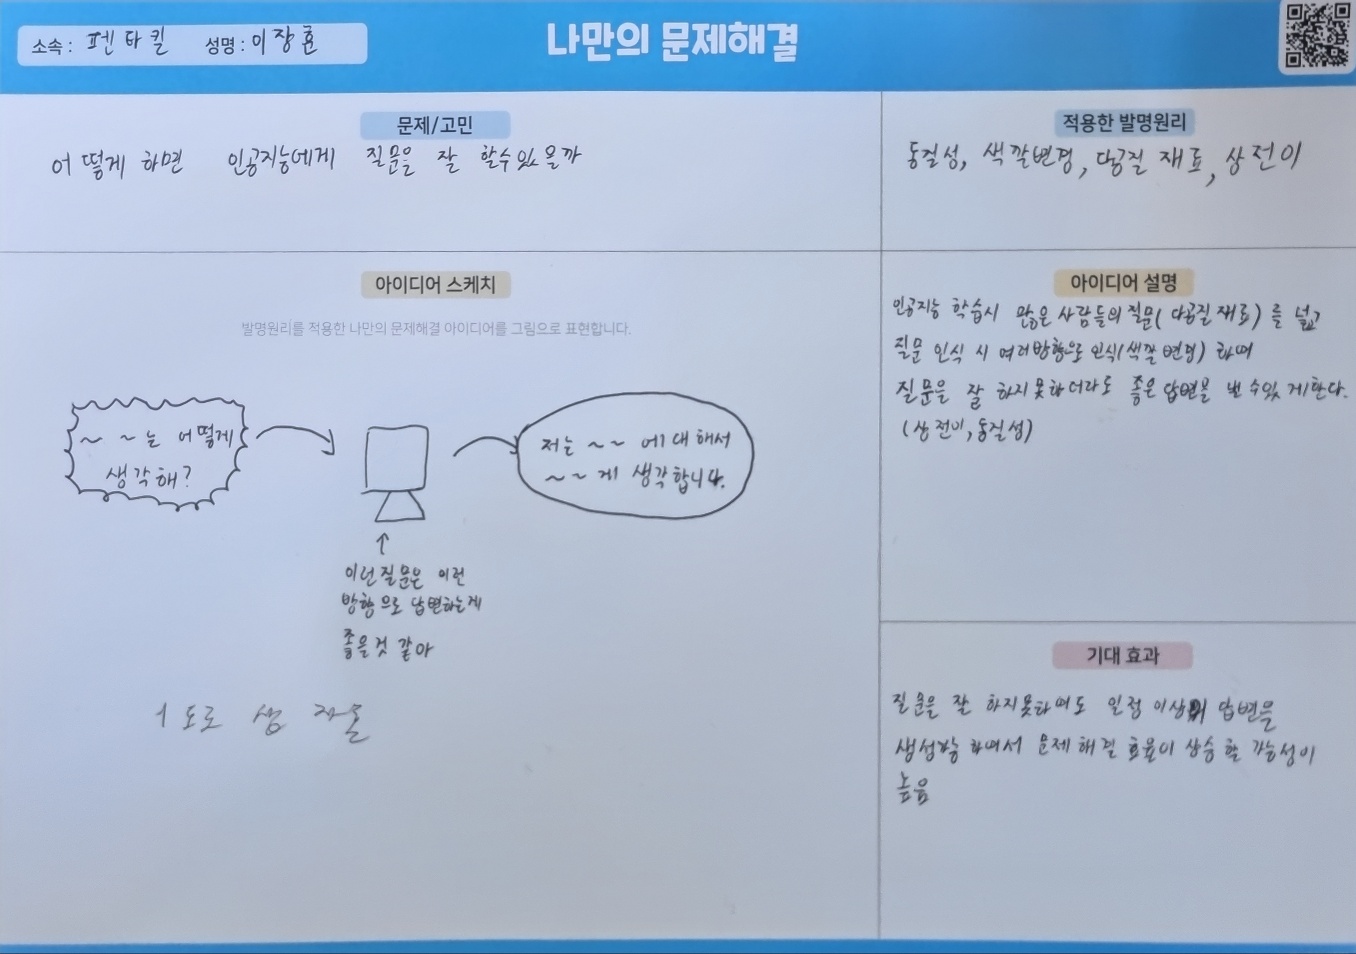 소속 : 펜타킬 성명 : 이장훈
나만의 문제해결
문제/고민
어떻게 하면 인공지능에게 질문을 잘 할수있을까
적용한 발명원리
동질성, 색깔변경, 다공질 재료, 상전이
아이디어 스케치
발명원리를 적용한 나만의 문제해결 아이디어를 그림으로 표현합니다.
~ ~는 어떻게
생각해?
저는 ~~ 에대해서
~~게 생각합니다.
↑
이런질문은 이런
방향으로 답변하는게
좋을것 같아
아이디어 설명
인공지능 학습시 많은 사람들의 질문(다공질재료)를 넣고
질문 인식 시 여러방향으로 인식(색깔변경) 하며
질문을 잘 하지못하더라도 좋은 답변을 낼 수있게한다.
(상전이, 동질성)
기대 효과
질문을 잘 하지못하여도 일정 이상의 답변을
하여서 문제해결 효율이 상승할 가능성이
높음